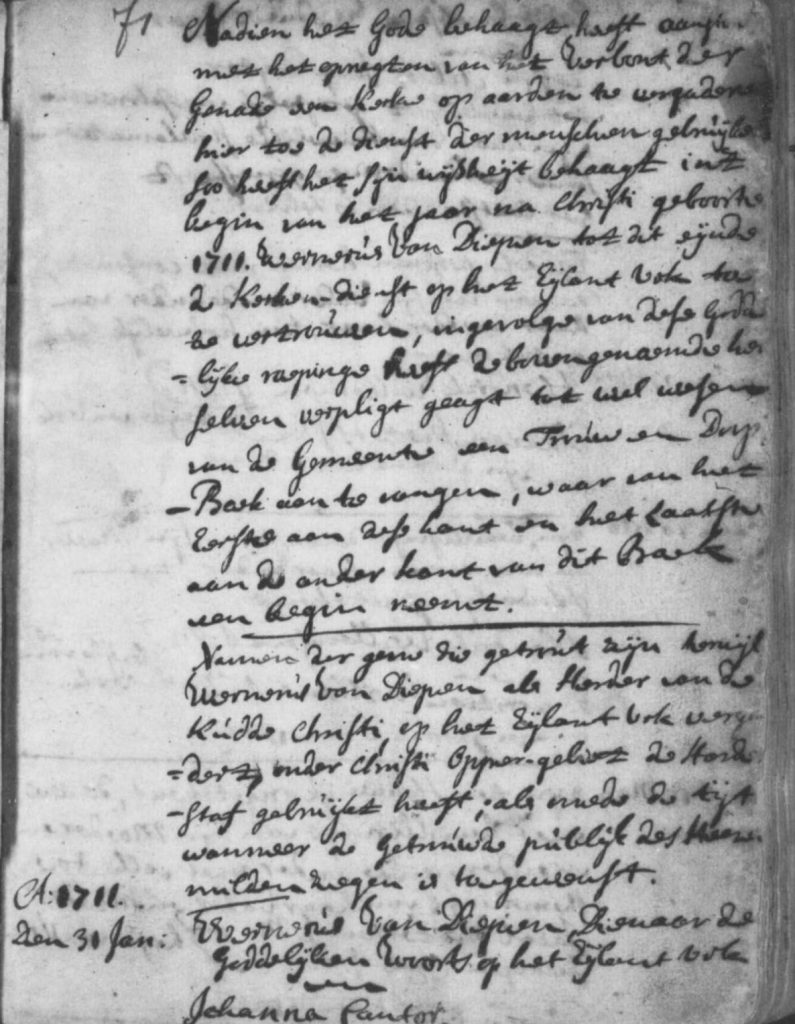 71
Nadien het Gode behaagt heeft
met het opregten van het Verbont der
Genade een Kerke op aarden te vergaderen
hier toe de dienst der menschen gebruijke
soo heeft het sijn wijsheijt behaagt int
begin van het jaar na Christi geboorte
1711. Wernerus Van Diepen tot dit eijnde
de Kerken-dienst op het Eijlant Urk toe
te vertrouwen, ingevolge van dese Godde
=lijke roepinge heeft de bovengenaemde hem
selven verpligt geagt tot wel wesen
van de Gemeente een Trouw en Doop
-Boek aan te vangen, waar van het
Eerste aan dese kant en het Laatste
aan de ander kant van dit Boek
een begin neemt.
Namen der gene die getrout zijn terwijl
Wernerus Van Diepen als Herder van de
Kudde Christi, op het Eijlant Urk verga
=dert, onder Christi Opper-gebiet de Herder
-staf gebruijkt heeft, als mede de tijt
wanneer de Getrouwde publijk des Heeren
milden zegen is toegewenst.
A: 1711.
den 31 Jan:
Wernerus Van Diepen, Dienaar des
Goddelijken Woorts op het Eijlant Urk
en
Johanna Cantor.